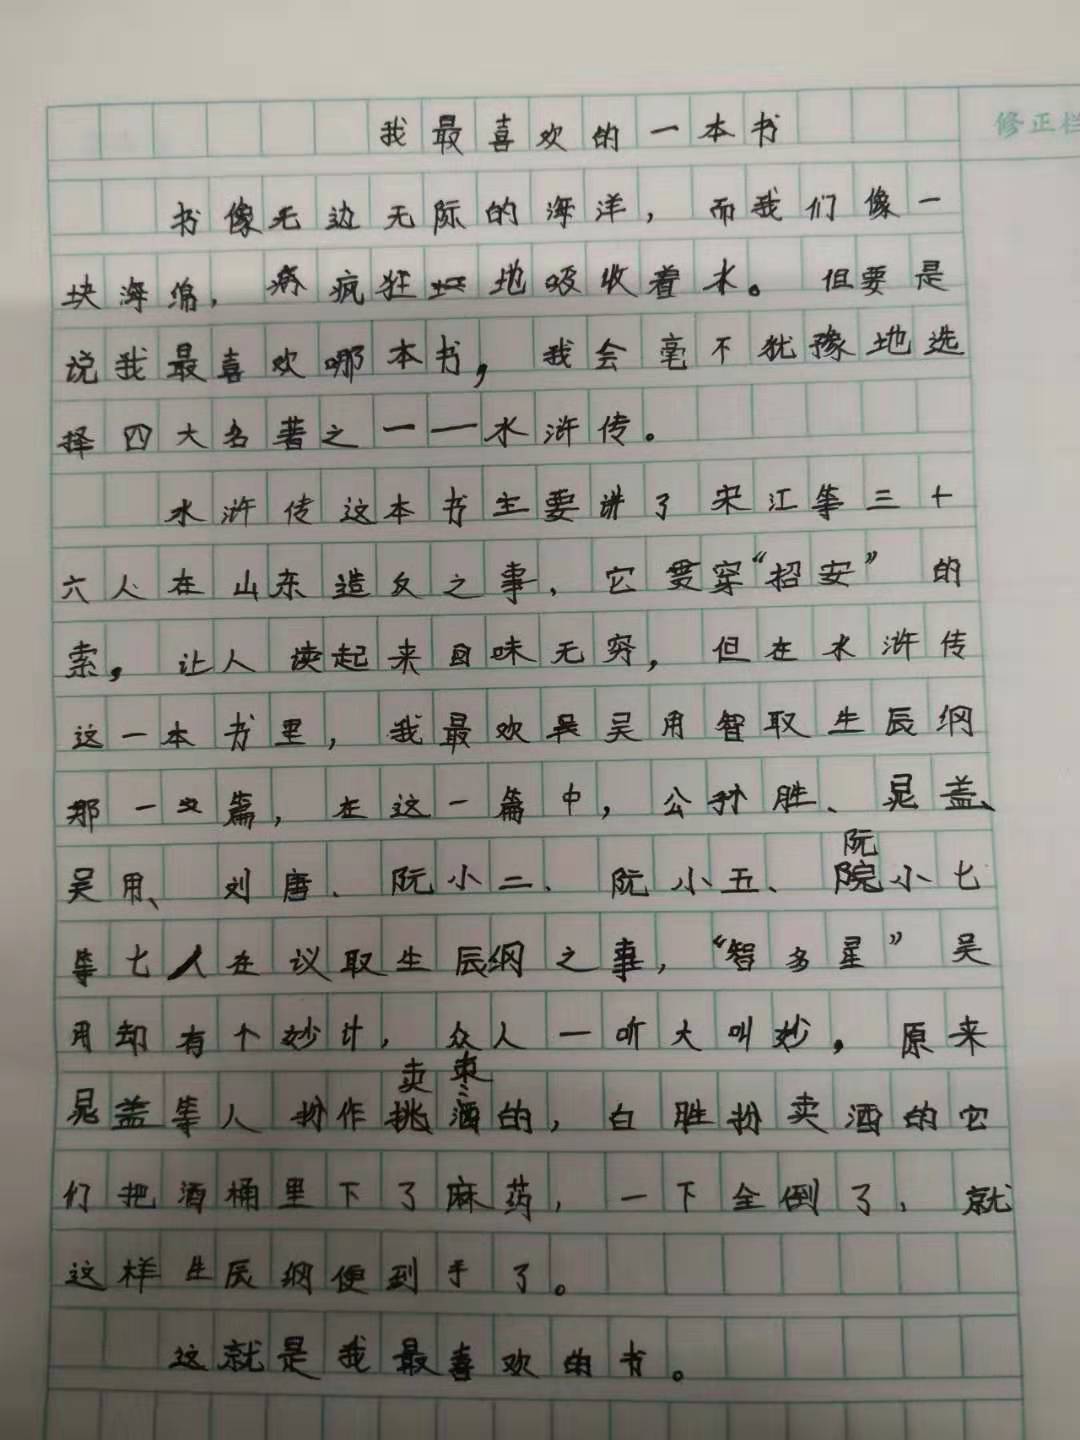 我最喜欢的一本书
修正栏
书像无边无际的海洋，而我们像一
块海绵，疯狂地吸收着水。但要是
说我最喜欢哪本书，我会毫不犹豫地选
择四大名著之一——水浒传。
水浒传这本书主要讲了宋江等三十
六人在山东造反之事，它贯穿“招安”的
索，让人读起来回味无穷，但在水浒传
这一本书里，我最欢吴用智取生辰纲
那一篇，在这一篇中，公孙胜、晁盖、
吴用、刘唐、阮小二、阮小五、阮小七
等七人在议取生辰纲之事，“智多星”吴
用却有个妙计，众人一听大叫妙，原来
晁盖等人扮作卖枣的，白胜扮卖酒的它
们把酒桶里下了麻药，一下全倒了，就
这样生辰纲便到手了。
这就是我最喜欢的书。